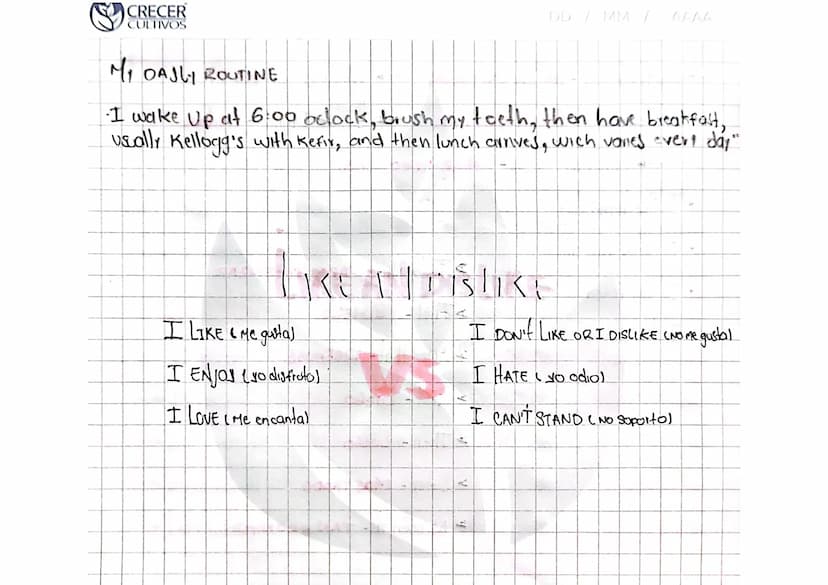 CRECER
CULTIVOS
DD / MM / AAAA
My DAILY ROUTINE
I wake up at 6:00 oclock, brush my teeth, then have breakfast,
usally Kellogg's with kefir, and then lunch arrives, wich varies every day"
LIKE AND DISLIKE
I LIKE (Me gusta)
I DON'T LIKE OR I DISLIKE (NO me gusta)
I ENJOY (yo disfruto)
VS
I HATE (yo odio)
I LOVE (Me encanta)
I CAN'T STAND (NO soporto)